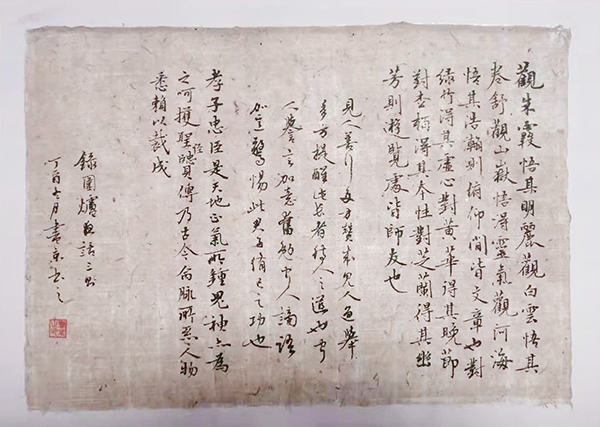 觀朱霞悟其明麗觀白雲悟其
卷舒觀山嶽悟得靈氣觀河海
悟其浩瀚則俯仰間皆文章也對
綠竹得其虛心對黃華得其晚節
對松柏得其本性對芝蘭得其幽
芳則遊覽處皆師友也
見人善行多方贊成見人過舉
多方提醒此長者待人之道也聞
人譽言加意奮勉聞人謗語
加意警惕此君子修己之功也
孝子忠臣是天地正氣所鍾鬼神亦為
之呵護聖經賢傳乃古今命脈所懸人物
悉賴以裁成
錄圍爐夜話三則
丁酉七月書